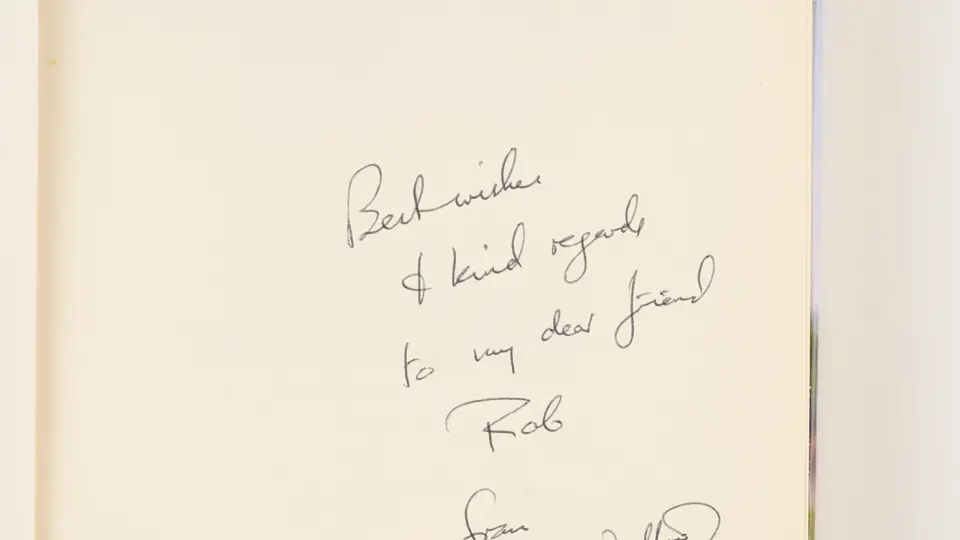 Best wishes
& kind regards
to my dear friend
Rob